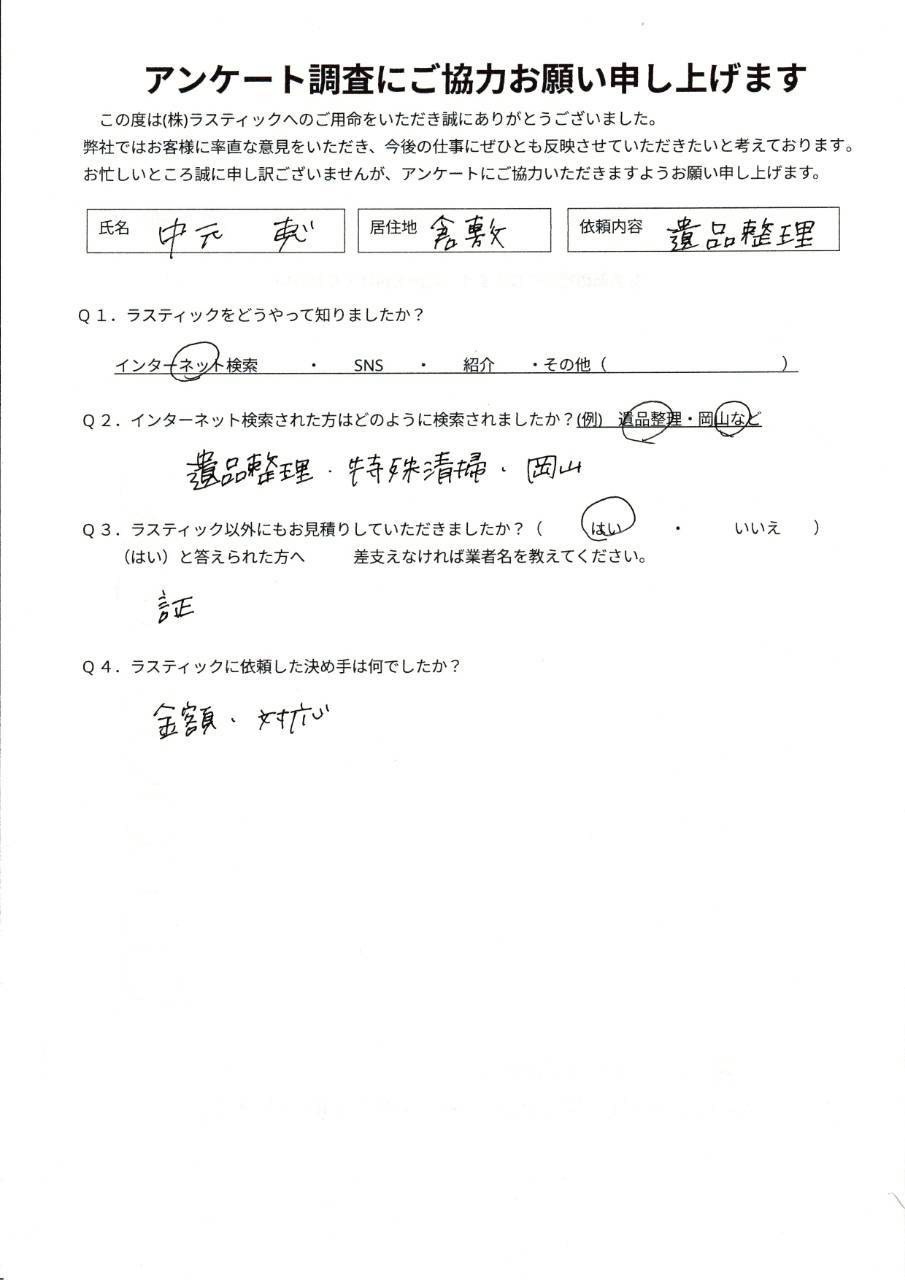 アンケート調査にご協力お願い申し上げます
この度は(株)ラスティックへのご用命をいただき誠にありがとうございました。
弊社ではお客様に率直な意見をいただき、今後の仕事にぜひとも反映させていただきたいと考えております。
お忙しいところ誠に申し訳ございませんが、アンケートにご協力いただきますようお願い申し上げます。
氏名 中元 居住地 倉敷 依頼内容 遺品整理
Q１．ラスティックをどうやって知りましたか？
インターネット検索 ・ SNS ・ 紹介 ・その他（ ）
Q２．インターネット検索された方はどのように検索されましたか？(例) 遺品整理・岡山など
遺品整理・特殊清掃・岡山
Q３．ラスティック以外にもお見積りしていただきましたか？（ はい ・ いいえ ）
（はい）と答えられた方へ 差支えなければ業者名を教えてください。
証
Q４．ラスティックに依頼した決め手は何でしたか？
金額・対応